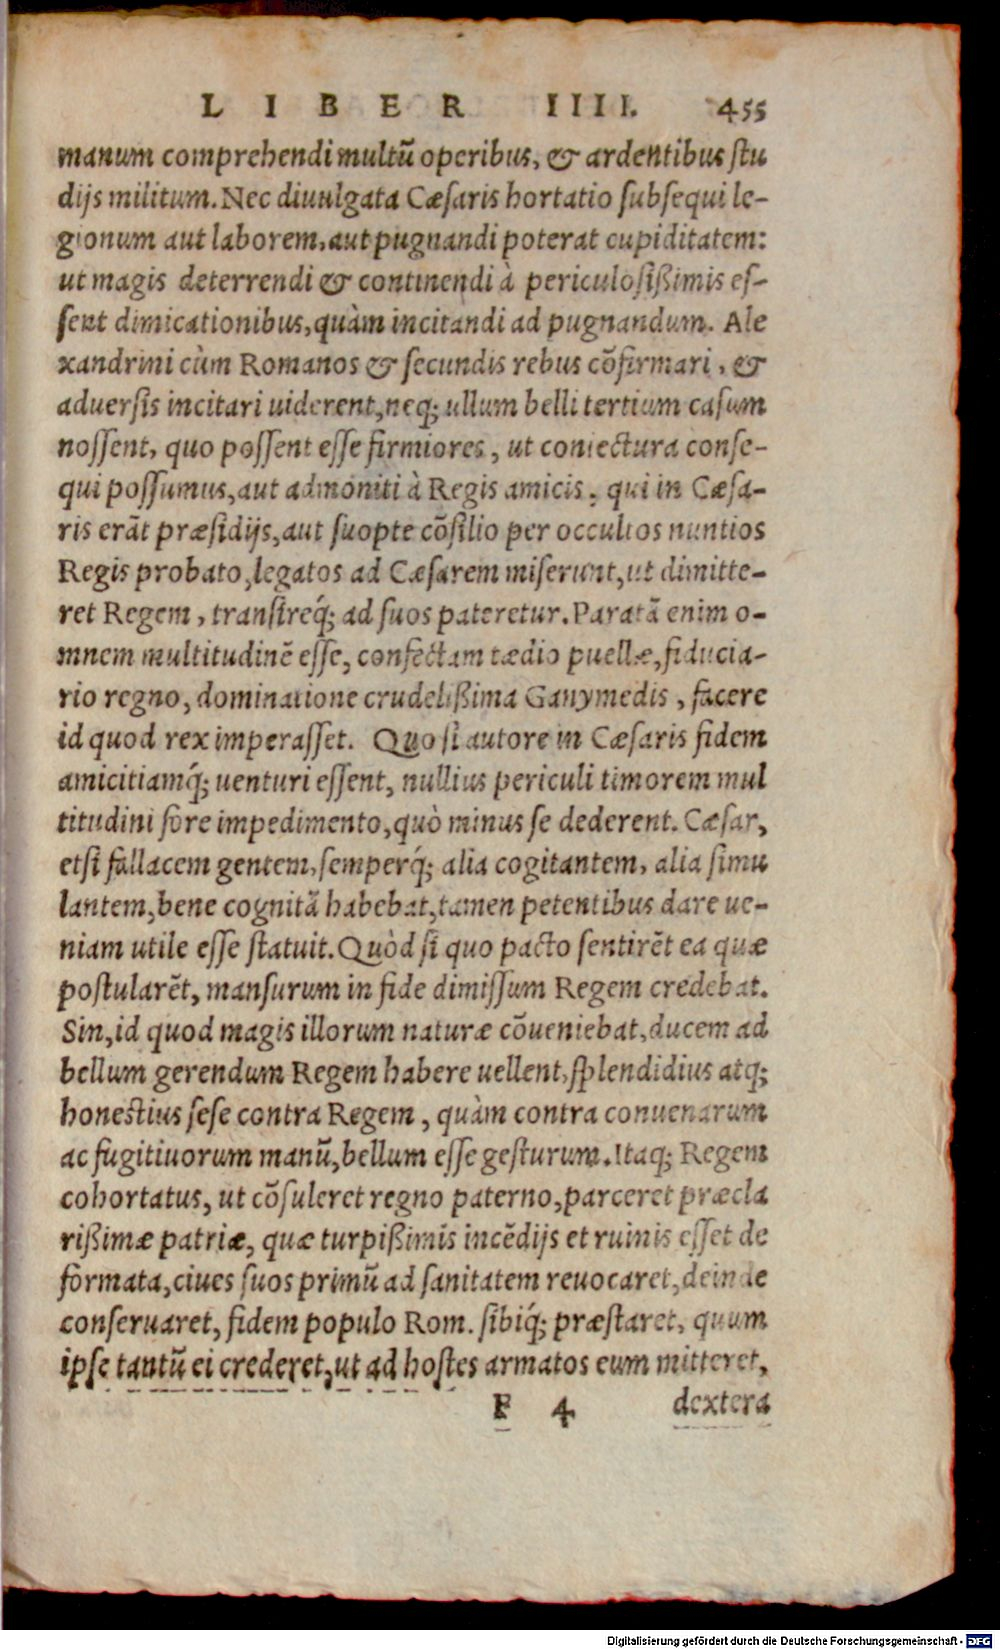 LIBER IIII. 455
manum comprehendi multū operibus, & ardentibus stu
dijs militum. Nec diuulgata Cæsaris hortatio subsequi le-
gionum aut laborem, aut pugnandi poterat cupiditatem:
ut magis deterrendi & continendi à periculosißimis es-
sent dimicationibus, quàm incitandi ad pugnandum. Ale
xandrini cùm Romanos & secundis rebus cōfirmari, &
aduersis incitari uiderent, neq; ullum belli tertium casum
nossent, quo possent esse firmiores, ut coniectura conse-
qui possumus, aut admoniti à Regis amicis, qui in Cæsa-
ris erāt præsidijs, aut suopte cōsilio per occultos nuntios
Regis probato, legatos ad Cæsarem miserunt, ut dimitte-
ret Regem, transireq́; ad suos pateretur. Paratā enim o-
mnem multitudinē esse, confectam tædio puellæ, fiducia-
rio regno, dominatione crudelißima Ganymedis, facere
id quod rex imperasset. Quo si autore in Cæsaris fidem
amicitiamq́; uenturi essent, nullius periculi timorem mul
titudini fore impedimento, quò minus se dederent. Cæsar,
etsi fallacem gentem, semperq́; alia cogitantem, alia simu
lantem, bene cognitā habebat, tamen petentibus dare ue-
niam utile esse statuit. Quòd si quo pacto sentirēt ea quæ
postularēt, mansurum in fide dimissum Regem credebat.
Sin, id quod magis illorum naturæ cōueniebat, ducem ad
bellum gerendum Regem habere uellent, splendidius atq;
honestius sese contra Regem, quàm contra conuenarum
ac fugitiuorum manū, bellum esse gesturum. Itaq; Regem
cohortatus, ut cōsuleret regno paterno, parceret præcla
rißimæ patriæ, quæ turpißimis incēdijs et ruinis esset de
formata, ciues suos primū ad sanitatem reuocaret, deinde
conseruaret, fidem populo Rom. sibiq́; præstaret, quum
ipse tantū ei crederet, ut ad hostes armatos eum mitteret,
F 4 dextera
Digitalisierung gefördert durch die Deutsche Forschungsgemeinschaft - DFG